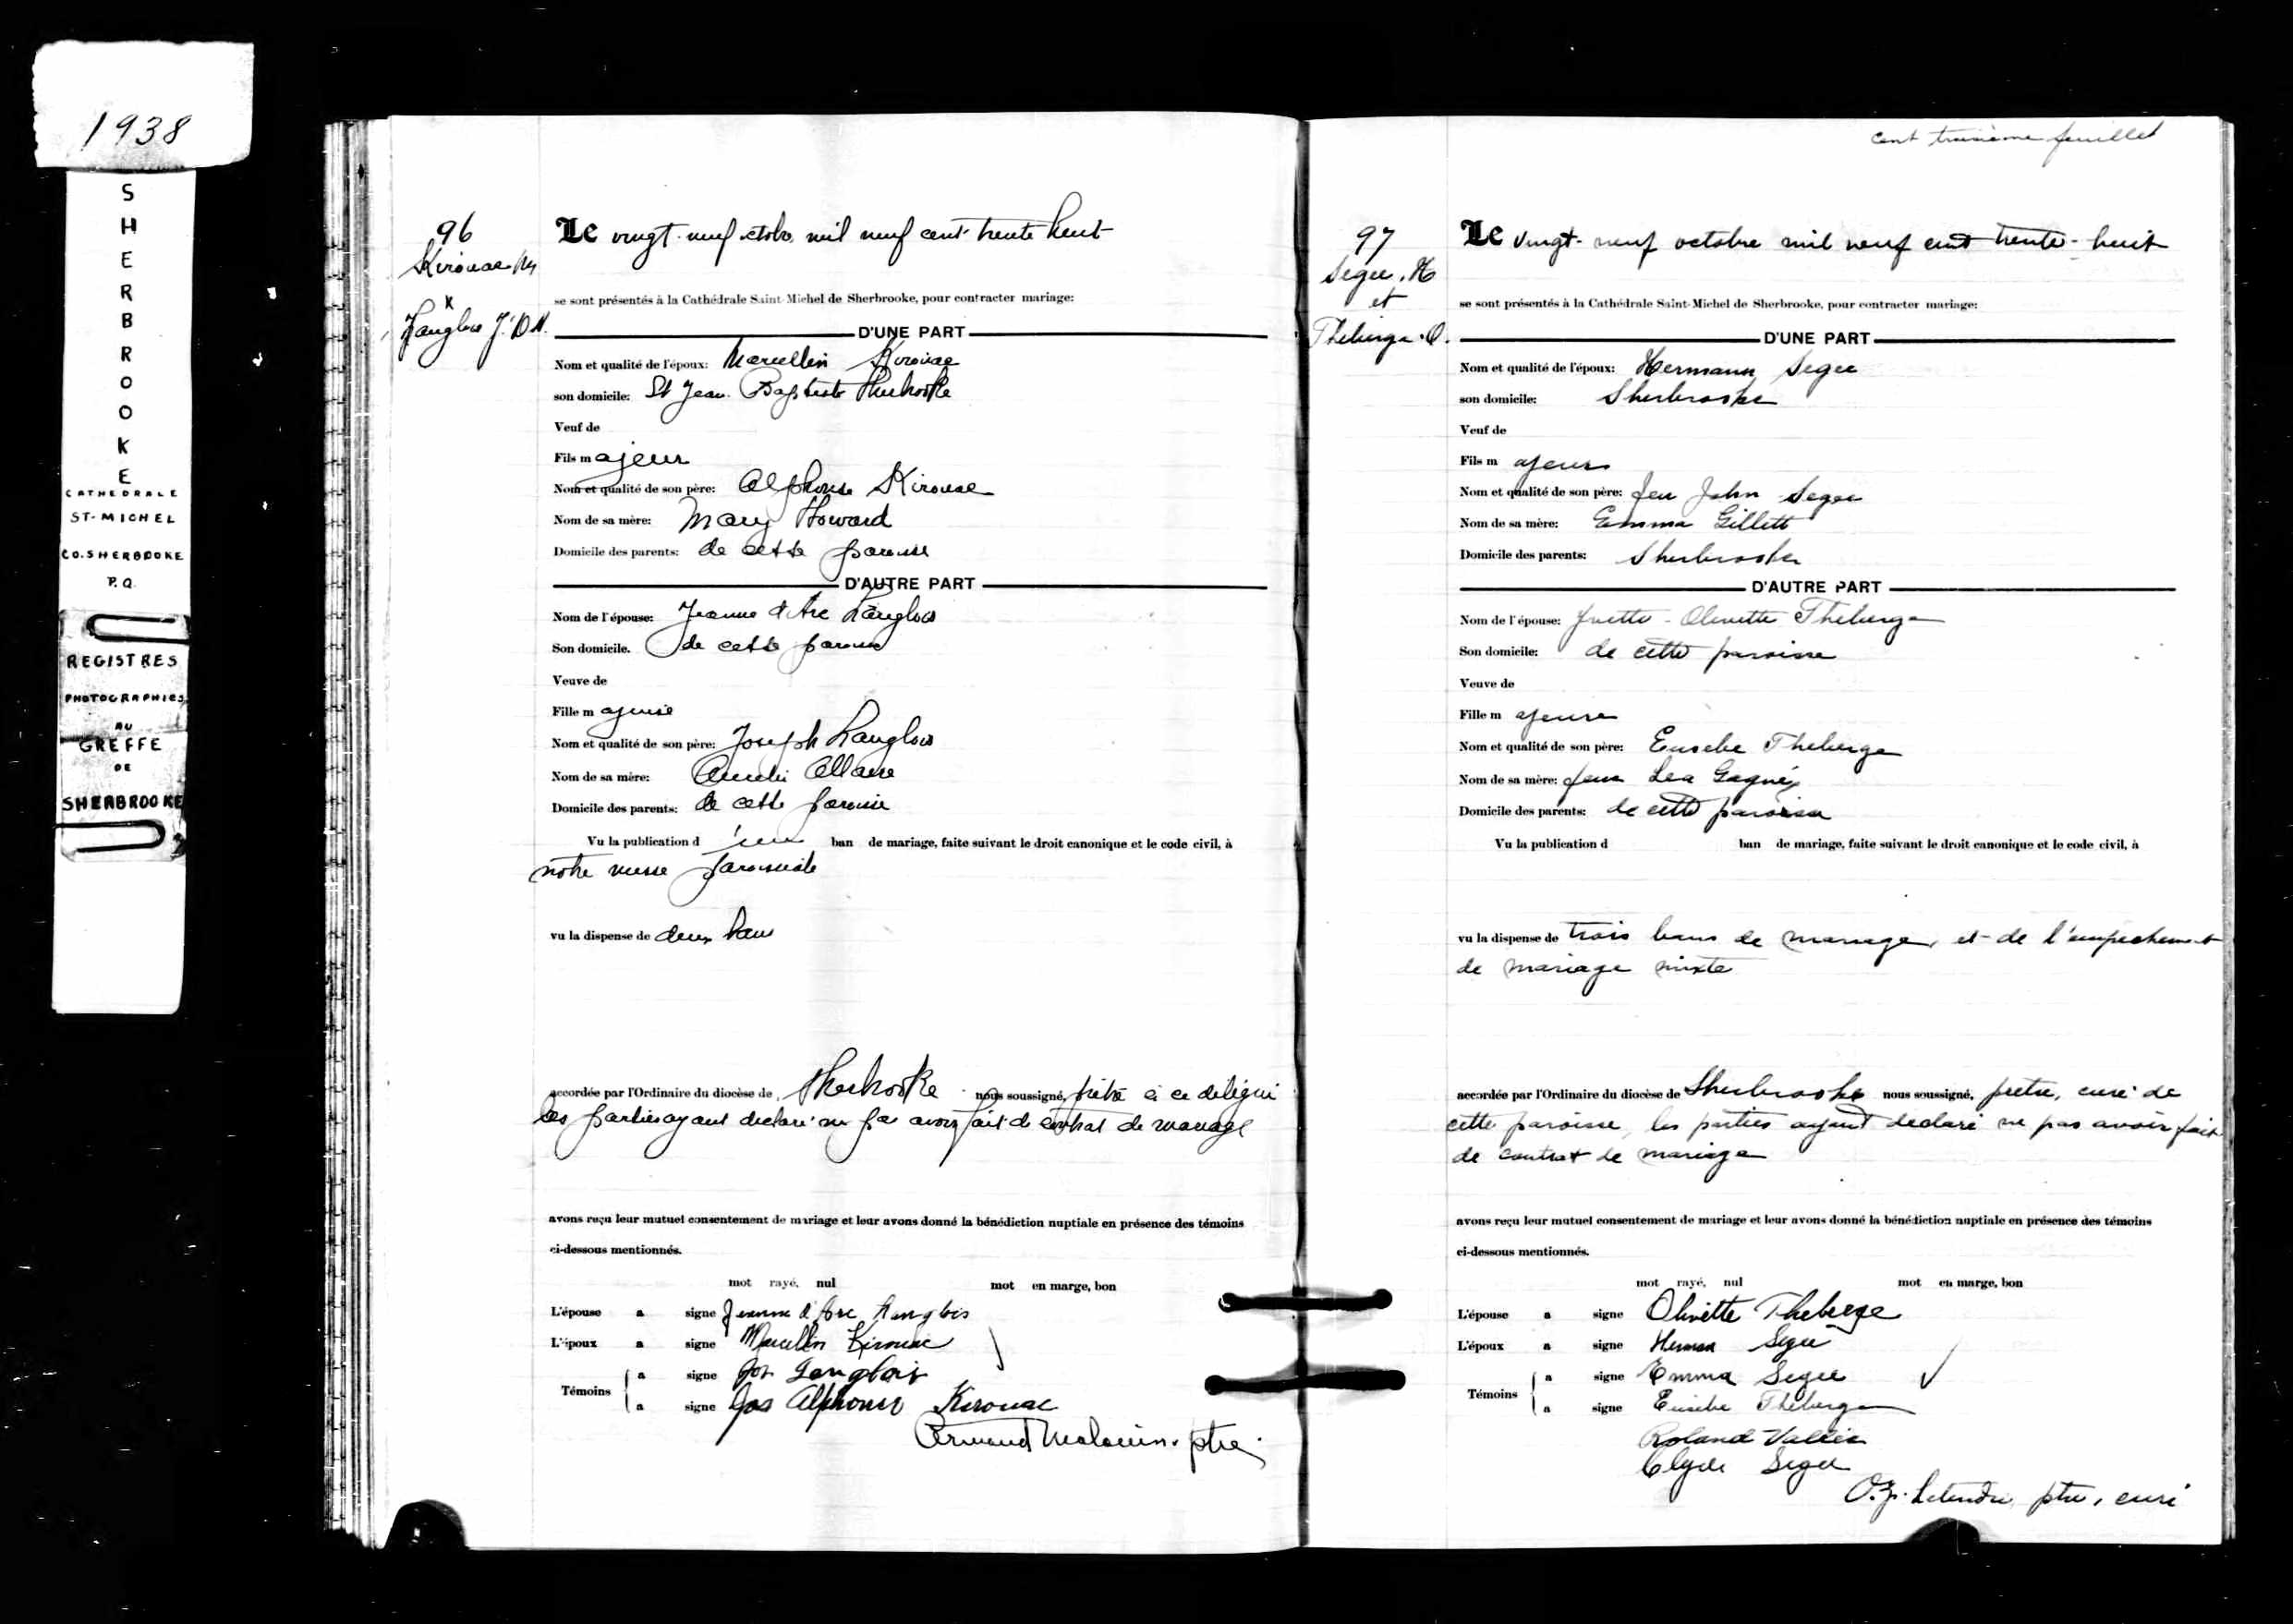 1938
SHERBROOKE
CATHEDRALE
ST-MICHEL
CO. SHERBROOKE
P.Q.
REGISTRES
PHOTOGRAPHIES
AU
GREFFE
DE
SHERBROOKE
96
Kirouac M
x
Langlois J. D'A.
Le vingt-neuf octobre mil neuf cent trente huit
se sont présentés à la Cathédrale Saint-Michel de Sherbrooke, pour contracter mariage:
D'UNE PART
Nom et qualité de l'époux: Marcellin Kirouac
son domicile: St Jean-Baptiste Sherbrooke
Veuf de
Fils majeur
Nom et qualité de son père: Alphonse Kirouac
Nom de sa mère: Mary Howard
Domicile des parents: de cette paroisse
D'AUTRE PART
Nom de l'épouse: Jeanne d'Arc Langlois
Son domicile. de cette paroisse
Veuve de
Fille majeure
Nom et qualité de son père: Joseph Langlois
Nom de sa mère: Allaire
Domicile des parents: de cette paroisse
Vu la publication d'un ban de mariage, faite suivant le droit canonique et le code civil, à
notre messe paroissiale
vu la dispense de deux bans
accordée par l'Ordinaire du diocèse de Sherbrooke nous soussigné, prêtre à ce délégué
les parties ayant déclaré ne pas avoir fait de contrat de mariage
avons reçu leur mutuel consentement de mariage et leur avons donné la bénédiction nuptiale en présence des témoins
ci-dessous mentionnés.
mot rayé, nul mot en marge, bon
L'épouse a signe Jeanne d'Arc Langlois
L'époux a signe Marcellin Kirouac
Témoins a signe Jos Langlois
a signe Jos Alphonse Kirouac
Armand Malouin. ptre
cent troisième feuillet
97
Segee. H
et
Theberge. O.
Le vingt-neuf octobre mil neuf cent trente-huit
se sont présentés à la Cathédrale Saint-Michel de Sherbrooke, pour contracter mariage:
D'UNE PART
Nom et qualité de l'époux: Hermann Segee
son domicile: Sherbrooke
Veuf de
Fils majeur
Nom et qualité de son père: feu John Segee
Nom de sa mère: Emma Gillett
Domicile des parents: Sherbrooke
D'AUTRE PART
Nom de l'épouse: Yvette-Olivette Theberge
Son domicile: de cette paroisse
Veuve de
Fille majeure
Nom et qualité de son père: Eusebe Theberge
Nom de sa mère: feue Lea Gagné
Domicile des parents: de cette paroisse
Vu la publication d ban de mariage, faite suivant le droit canonique et le code civil, à
vu la dispense de trois bans de mariage, et de l'empechement
de mariage mixte
accordée par l'Ordinaire du diocèse de Sherbrooke nous soussigné, pretre, curé de
cette paroisse, les parties ayant declaré ne pas avoir fait
de contrat de mariage
avons reçu leur mutuel consentement de mariage et leur avons donné la bénédiction nuptiale en présence des témoins
ci-dessous mentionnés.
mot rayé, nul mot en marge, bon
L'épouse a signe Olivette Theberge
L'époux a signe Herman Segee
Témoins a signe Emma Segee
a signe Eusebe Theberge
Roland Vallée
Clyde Segee
O.Z. Letendre, ptre, curé